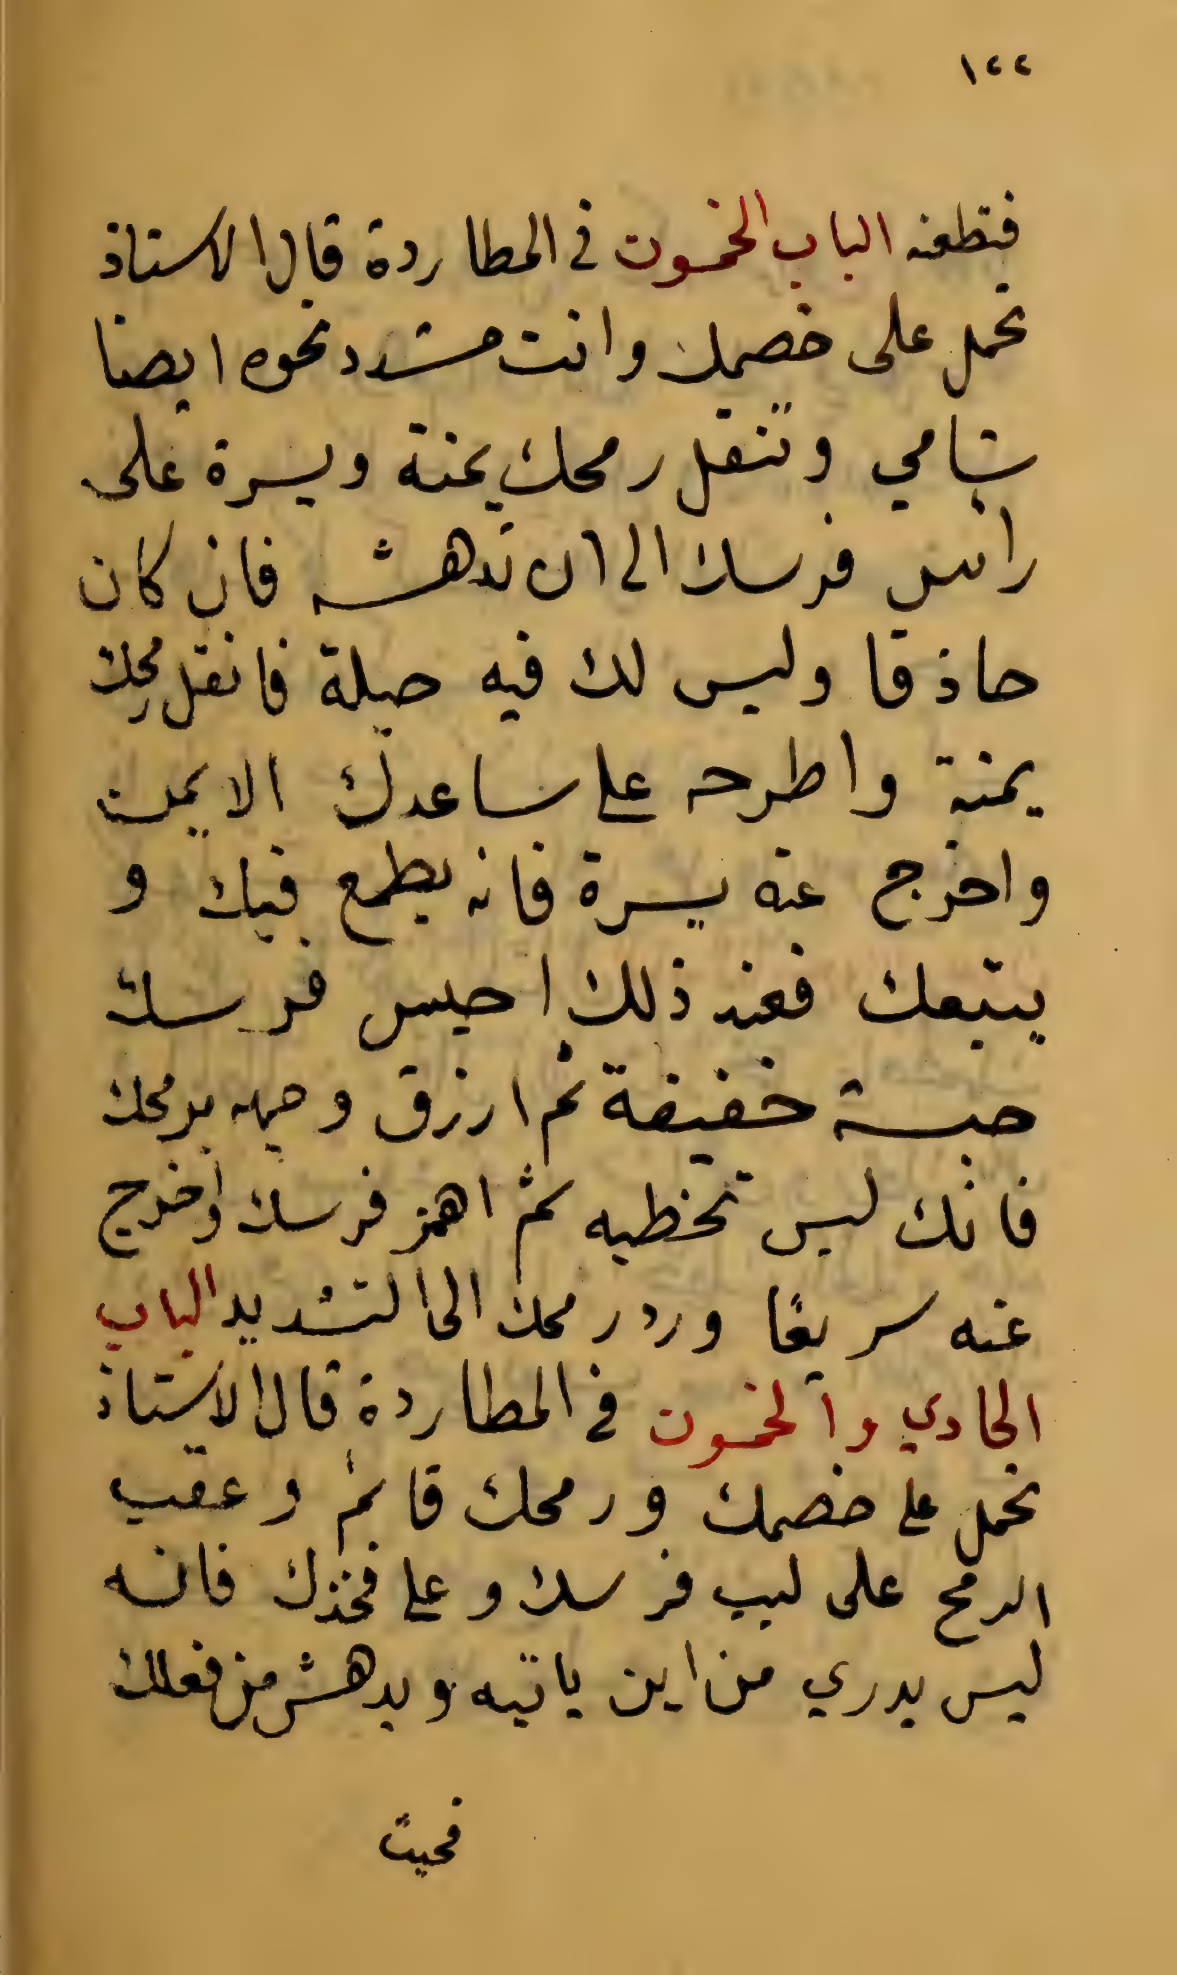 ١٢٢
فتطعنه الباب الخمسون في المطاردة قال الاستاذ
تحمل على خصمك وانت مشدد نحوه ايضا
شامي وتنقل رمحك يمنة ويسرة على
رأس فرسك الى ان تدهشه فان كان
حاذقا وليس لك فيه حيلة فانقل رمحك
يمنة واطرحه على ساعدك الايمن
واخرج عنه يسرة فانه يطمع فيك و
يتبعك فعند ذلك احبس فرسك
حبسة خفيفة ثم ارزق وجهه برمحك
فانك ليس تخطيه ثم اهمز فرسك واخرج
عنه سريعًا ورد رمحك الى التشديد الباب
الحادي والخمسون في المطاردة قال الاستاذ
تحمل على خصمك ورمحك قائم وعقب
الرمح على لبب فرسك وعلى فخذك فانه
ليس يدري من اين ياتيه ويدهش من فعلك
فحيث